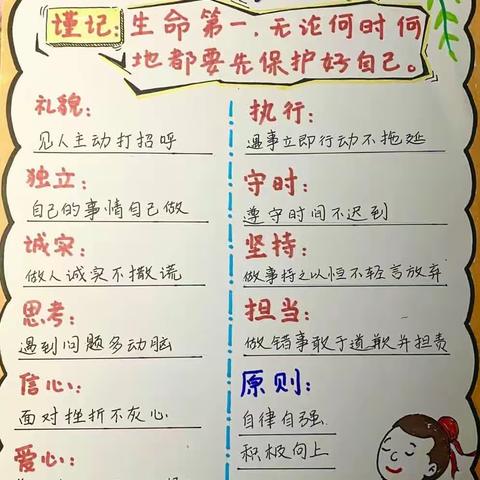 谨记:生命第一,无论何时何
地都要先保护好自己。
礼貌:
见人主动打招呼
独立:
自己的事情自己做
诚实:
做人诚实不撒谎
思考:
遇到问题多动脑
信心:
面对挫折不灰心
爱心:
执行:
遇事立即行动不拖延
守时:
遵守时间不迟到
坚持:
做事持之以恒不轻言放弃
担当:
做错事敢于道歉并担责
原则:
自律自强
积极向上